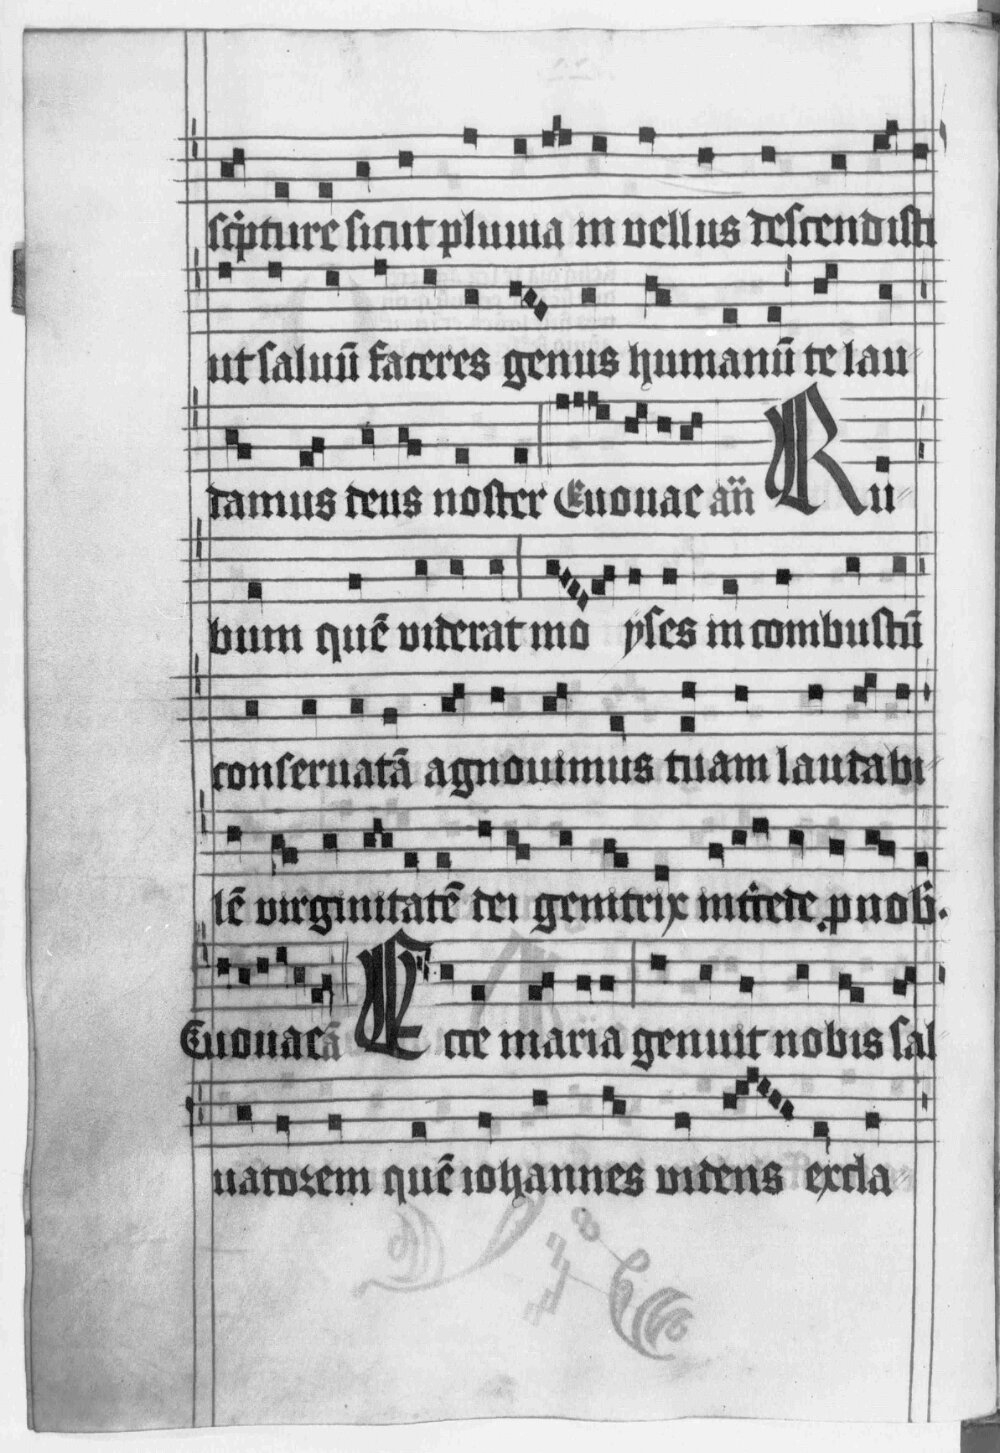 scͥpture sicut pluuia in vellus descendisti
ut saluū faceres genus humanū te lau
damus deus noster Euouae añ Ru
bum quē viderat mo yses in combustū
conseruatā agnouimus tuam laudabi
lē virginitatē dei genitrix intͥcede p nob
Euouae ā Ecce maria genuit nobis sal
uatorem quē iohannes videns excla